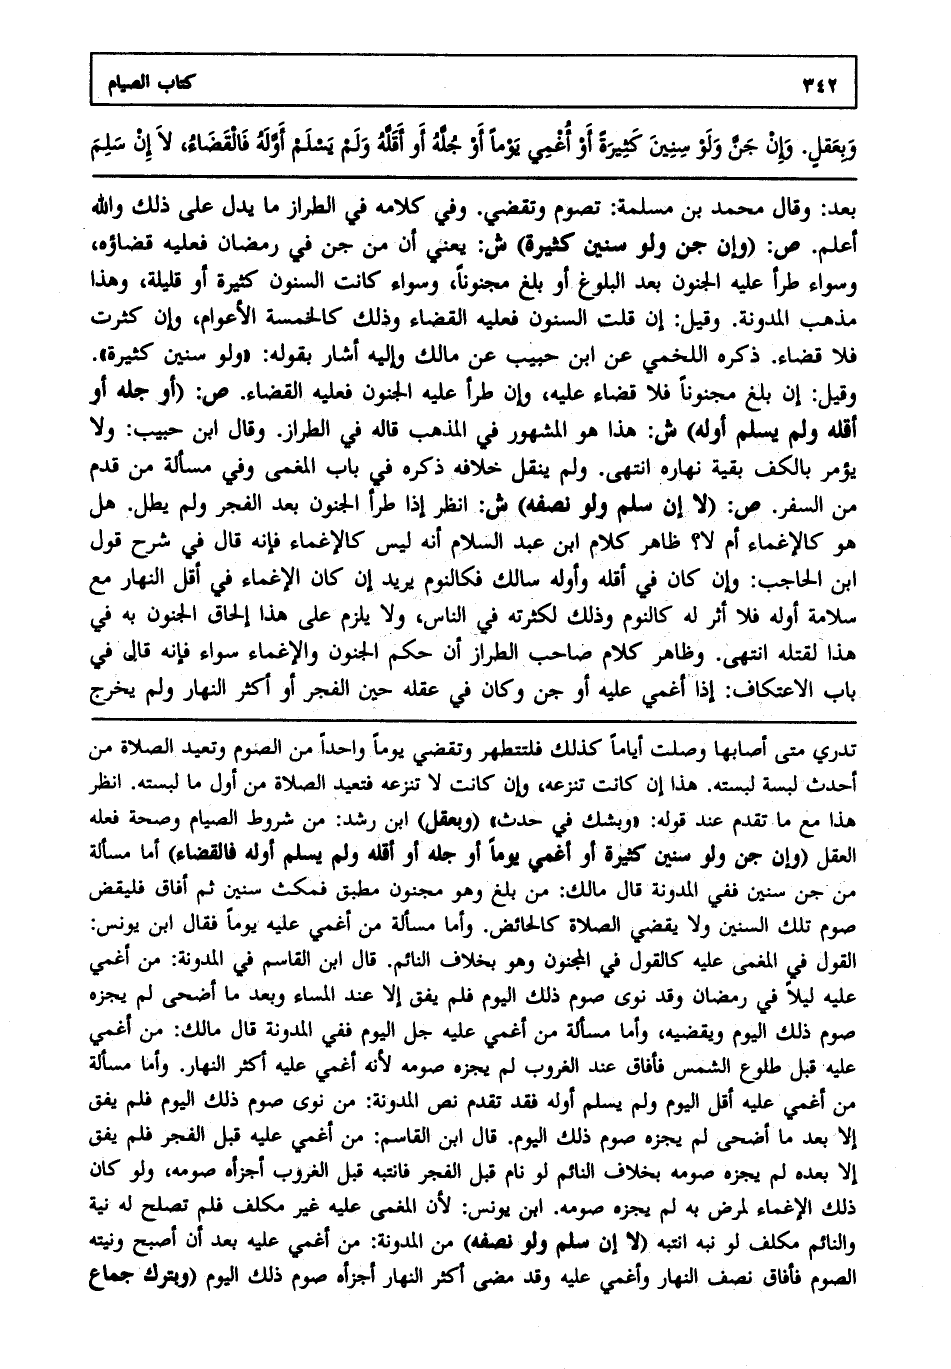 ٣٤٢ كتاب الصيام
وَبِعَقلٍ. وَإِنْ جَنَّ وَلَوْ سِنِينَ كَثِيرَةً أَوْ أُغْمِي يَوْماً أَوْ جُلَّهُ أَو أَقَلَّهُ وَلَمْ يَسْلَمْ أَوَّلَهُ فَالْقَضَاءُ، لاَ إِنْ سَلِمَ
بعد: وقال محمد بن مسلمة: تصوم وتقضي. وفي كلامه في الطراز ما يدل على ذلك والله
أعلم. ص: (وإن جن ولو سنين كثيرة) ش: يعني أن من جن في رمضان فعليه قضاؤه،
وسواء طرأ عليه الجنون بعد البلوغ أو بلغ مجنوناً، وسواء كانت السنون كثيرة أو قليلة، وهذا
مذهب المدونة. وقيل: إن قلت السنون فعليه القضاء وذلك كالخمسة الأعوام، وإن كثرت
فلا قضاء. ذكره اللخمي عن ابن حبيب عن مالك وإليه أشار بقوله: «ولو سنين كثيرة».
وقيل: إن بلغ مجنوناً فلا قضاء عليه، وإن طرأ عليه الجنون فعليه القضاء. ص: (أو جله أو
أقله ولم يسلم أوله) ش: هذا هو المشهور في المذهب قاله في الطراز. وقال ابن حبيب: ولا
يؤمر بالكف بقية نهاره انتهى. ولم ينقل خلافه ذكره في باب المغمى وفي مسألة من قدم
من السفر. ص: (لا إن سلم ولو نصفه) ش: انظر إذا طرأ الجنون بعد الفجر ولم يطل. هل
هو كالإغماء أم لا؟ ظاهر كلام ابن عبد السلام أنه ليس كالإغماء فإنه قال في شرح قول
ابن الحاجب: وإن كان في أقله وأوله سالك فكالنوم يريد إن كان الإغماء في أقل النهار مع
سلامة أوله فلا أثر له كالنوم وذلك لكثرته في الناس، ولا يلزم على هذا إلحاق الجنون به في
هذا لقتله انتهى. وظاهر كلام صاحب الطراز أن حكم الجنون والإغماء سواء فإنه قال في
باب الاعتكاف: إذا أغمي عليه أو جن وكان في عقله حين الفجر أو أكثر النهار ولم يخرج
تدري متى أصابها وصلت أياماً كذلك فلتتطهر وتقضي يوماً واحداً من الصوم وتعيد الصلاة من
أحدث لبسة لبسته. هذا إن كانت تنزعه، وإن كانت لا تنزعه فتعيد الصلاة من أول ما لبسته. انظر
هذا مع ما تقدم عند قوله: «وبشك في حدث» (وبعقل) ابن رشد: من شروط الصيام وصحة فعله
العقل (وإن جن ولو سنين كثيرة أو أغمي يوماً أو جله أو أقله ولم يسلم أوله فالقضاء) أما مسألة
من جن سنين ففي المدونة قال مالك: من بلغ وهو مجنون مطبق فمكث سنين ثم أفاق فليقض
صوم تلك السنين ولا يقضي الصلاة كالحائض. وأما مسألة من أغمي عليه يوماً فقال ابن يونس:
القول في المغمى عليه كالقول في المجنون وهو بخلاف النائم. قال ابن القاسم في المدونة: من أغمي
عليه ليلاً في رمضان وقد نوى صوم ذلك اليوم فلم يفق إلا عند المساء وبعد ما أضحى لم يجزه
صوم ذلك اليوم ويقضيه، وأما مسألة من أغمي عليه جل اليوم ففي المدونة قال مالك: من أغمي
عليه قبل طلوع الشمس فأفاق عند الغروب لم يجزه صومه لأنه أغمي عليه أكثر النهار. وأما مسألة
من أغمي عليه أقل اليوم ولم يسلم أوله فقد تقدم نص المدونة: من نوى صوم ذلك اليوم فلم يفق
إلا بعد ما أضحى لم يجزه صوم ذلك اليوم. قال ابن القاسم: من أغمي عليه قبل الفجر فلم يفق
إلا بعده لم يجزه صومه بخلاف النائم لو نام قبل الفجر فانتبه قبل الغروب أجزأه صومه، ولو كان
ذلك الإغماء لمرض به لم يجزه صومه. ابن يونس: لأن المغمى عليه غير مكلف فلم تصلح له نية
والنائم مكلف لو نبه انتبه (لا إن سلم ولو نصفه) من المدونة: من أغمي عليه بعد أن أصبح ونيته
الصوم فأفاق نصف النهار وأغمي عليه وقد مضى أكثر النهار أجزأه صوم ذلك اليوم (وبترك جماع